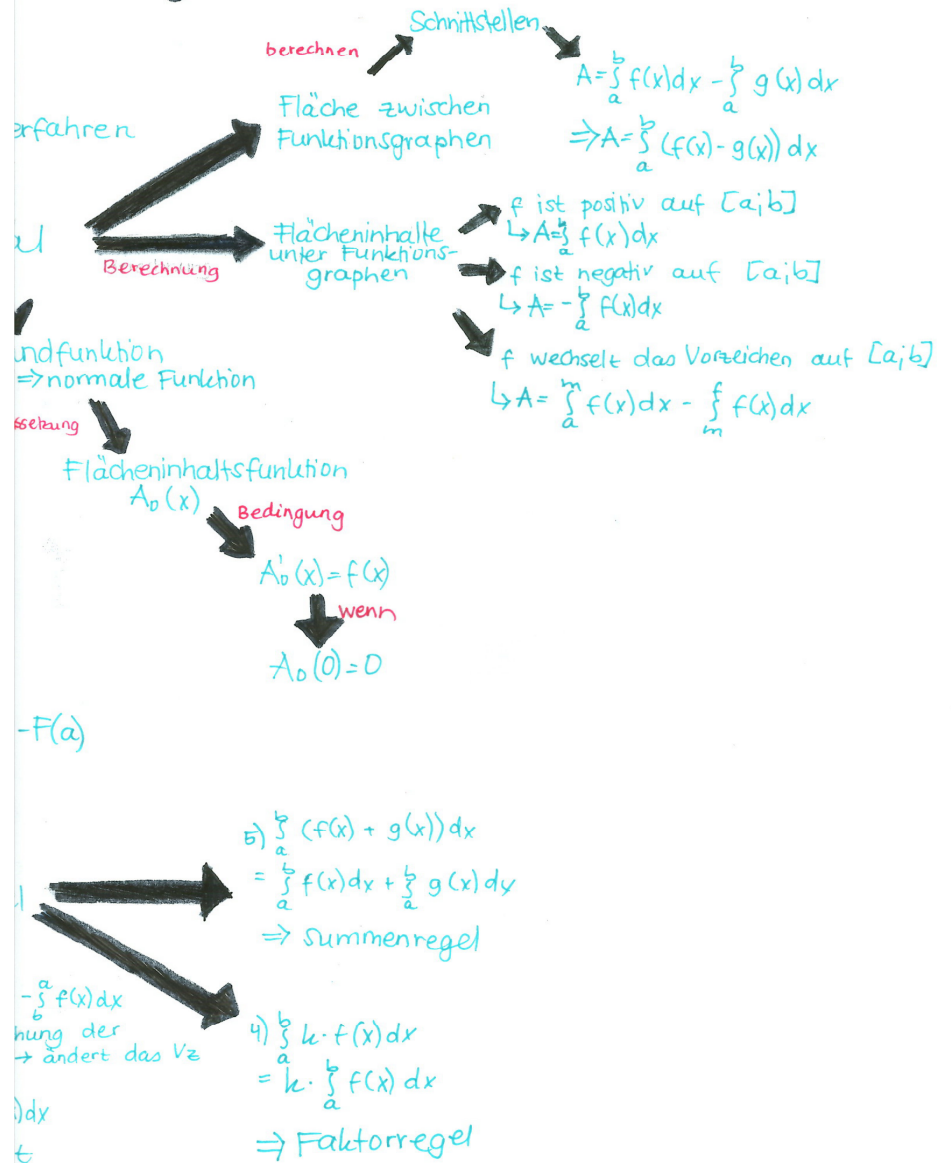 Schnittstellen
berechnen
A=∫ₐᵇ f(x)dx - ∫ₐᵇ g(x)dx
Fläche zwischen
Funktionsgraphen
⇒A=∫ₐᵇ (f(x)-g(x)) dx
erfahren
al
Berechnung
Flächeninhalte
unter Funktions-
graphen
f ist positiv auf [a;b]
↳A=∫ₐᵇ f(x)dx
f ist negativ auf [a;b]
↳A= -∫ₐᵇ f(x)dx
f wechselt das Vorzeichen auf [a;b]
↳A= ∫ₐᵐ f(x)dx - ∫ₘᶠ f(x)dx
ndfunktion
⇒normale Funktion
ssetzung
Flächeninhaltsfunktion
A₀(x)
Bedingung
A₀'(x)=f(x)
wenn
A₀(0)=0
-F(a)
5) ∫ₐᵇ (f(x) + g(x))dx
= ∫ₐᵇ f(x)dx + ∫ₐᵇ g(x)dx
⇒ Summenregel
l
-∫ᵇᵃ f(x)dx
hung der
→ ändert das Vz
)dx
t
4) ∫ₐᵇ k·f(x)dx
= k·∫ₐᵇ f(x) dx
⇒ Faktorregel